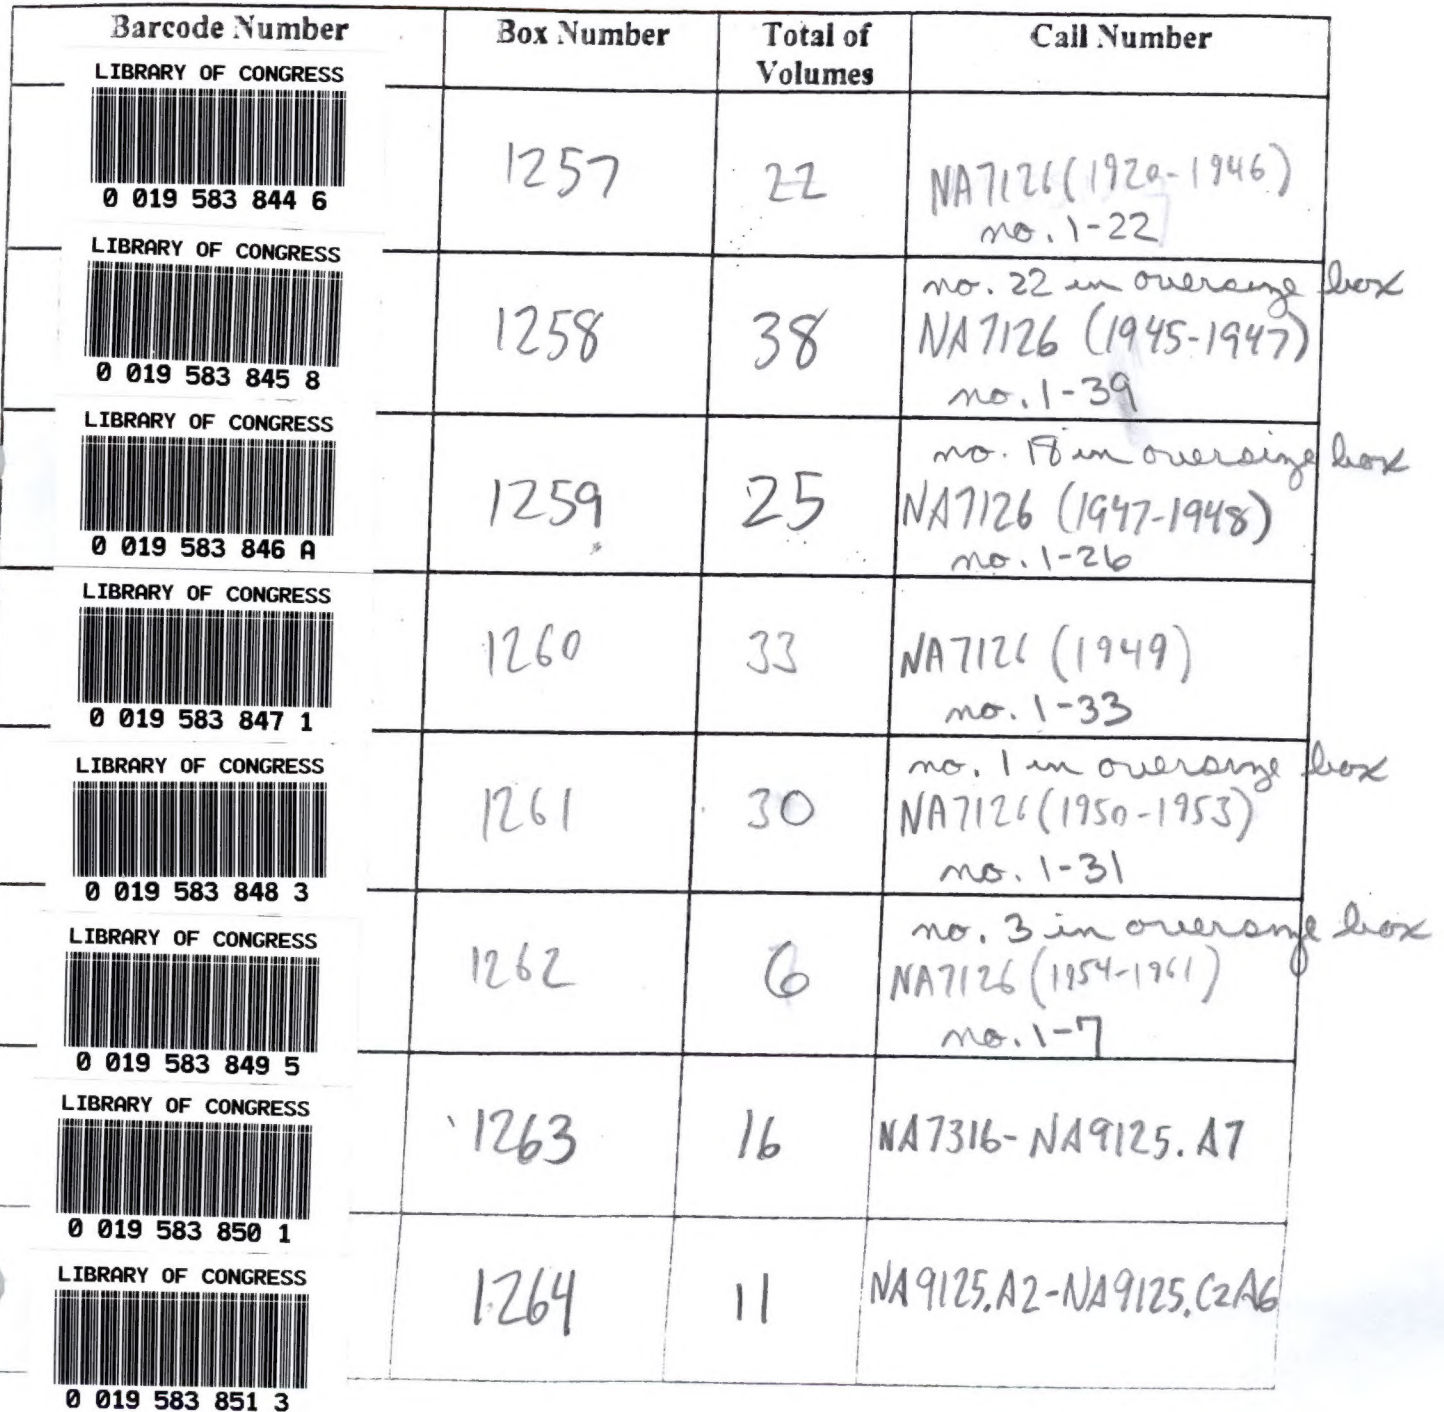 Barcode Number Box Number Total of Volumes Call Number
LIBRARY OF CONGRESS
0 019 583 844 6
1257 22 NA7126 (1920-1946)
no. 1-22
LIBRARY OF CONGRESS
0 019 583 845 8
no. 22 in oversize box
1258 38 NA7126 (1945-1947)
no. 1-39
LIBRARY OF CONGRESS
0 019 583 846 A
no. 18 in oversize box
1259 25 NA7126 (1947-1948)
no. 1-26
LIBRARY OF CONGRESS
0 019 583 847 1
1260 33 NA7126 (1949)
no. 1-33
LIBRARY OF CONGRESS
0 019 583 848 3
no. 1 in oversize box
1261 30 NA7126 (1950-1953)
no. 1-31
LIBRARY OF CONGRESS
0 019 583 849 5
no. 3 in oversize box
1262 6 NA7126 (1954-1961)
no. 1-7
LIBRARY OF CONGRESS
0 019 583 850 1
1263 16 NA7316-NA9125.A7
LIBRARY OF CONGRESS
0 019 583 851 3
1264 11 NA9125.A2-NA9125.C2A6